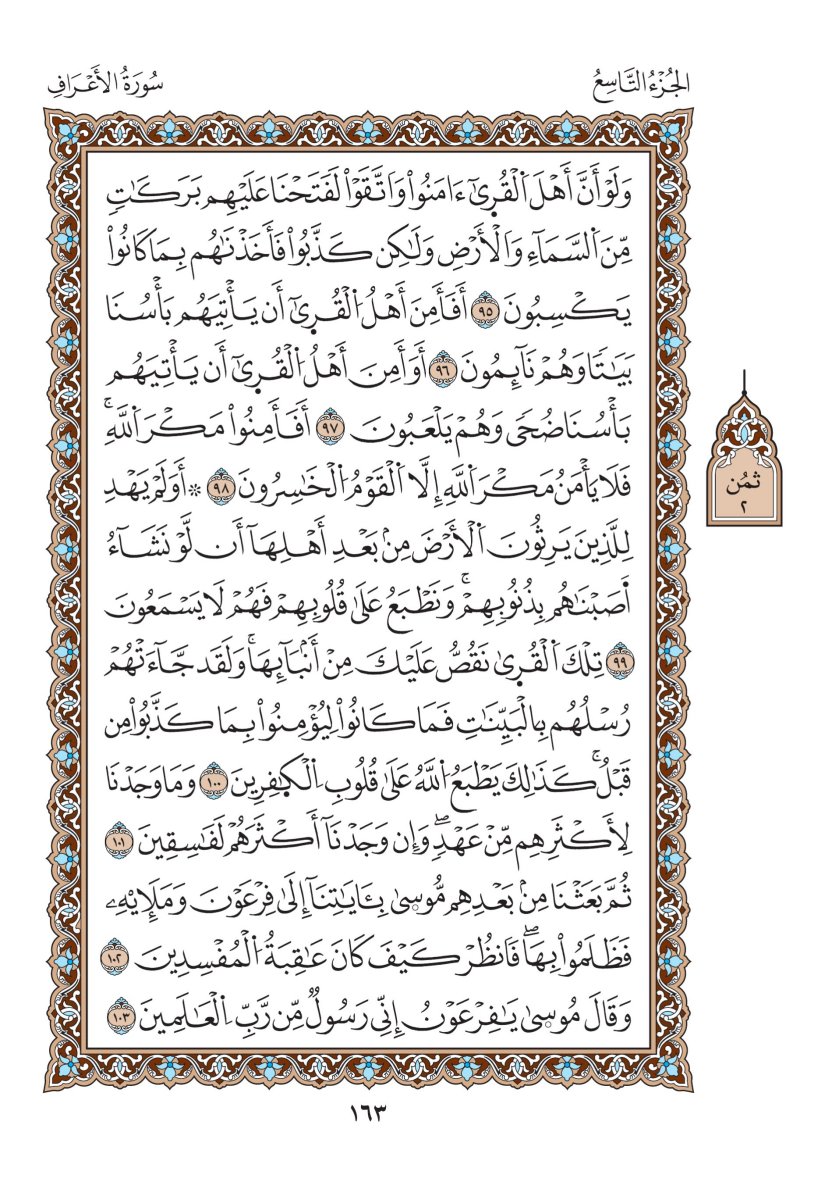 الجُزْءُ التَّاسِعُ
سُورَةُ الأَعْرَافِ
وَلَوْ أَنَّ أَهْلَ اَ۬لْقُر۪ىٰٓ ءَامَنُواْ وَاتَّقَوْاْ لَفَتَحْنَا عَلَيْهِم بَرَكَٰتٖ
مِّنَ اَ۬لسَّمَآءِ وَالْأَرْضِ وَلَٰكِن كَذَّبُواْ فَأَخَذْنَٰهُم بِمَا كَانُواْ
يَكْسِبُونَ ٩٥ أَفَأَمِنَ أَهْلُ اُ۬لْقُر۪ىٰٓ أَن يَأْتِيَهُم بَأْسُنَا
بَيَٰتاٗ وَهُمْ نَآئِمُونَ ٩٦ أَوَأَمِنَ أَهْلُ اُ۬لْقُر۪ىٰٓ أَن يَأْتِيَهُم
بَأْسُنَا ضُحىٗ وَهُمْ يَلْعَبُونَ ٩٧ أَفَأَمِنُواْ مَكْرَ اَ۬للَّهِۚ
فَلَا يَأْمَنُ مَكْرَ اَ۬للَّهِ إِلَّا اَ۬لْقَوْمُ اُ۬لْخَٰسِرُونَ ٩٨ ۞ أَوَلَمْ يَهْدِ
لِلَّذِينَ يَرِثُونَ اَ۬لْأَرْضَ مِنۢ بَعْدِ أَهْلِهَآ أَن لَّوْ نَشَآءُ
أَصَبْنَٰهُم بِذُنُوبِهِمْۚ وَنَطْبَعُ عَلَىٰ قُلُوبِهِمْ فَهُمْ لَا يَسْمَعُونَ
٩٩ تِلْكَ اَ۬لْقُر۪ىٰ نَقُصُّ عَلَيْكَ مِنْ أَنۢبَآئِهَاۚ وَلَقَد جَّآءَتْهُمْ
رُسْلُهُم بِالْبَيِّنَٰتِ فَمَا كَانُواْ لِيُؤْمِنُواْ بِمَا كَذَّبُواْ مِن
قَبْلُۚ كَذَٰلِكَ يَطْبَعُ اُ۬للَّهُ عَلَىٰ قُلُوبِ اِ۬لْكٰ۪فِرِينَ ١٠٠ وَمَا وَجَدْنَا
لِأَكْثَرِهِم مِّنْ عَهْدٖۖ وَإِن وَجَدْنَآ أَكْثَرَهُمْ لَفَٰسِقِينَ ١٠١
ثُمَّ بَعَثْنَا مِنۢ بَعْدِهِم مُّوس۪ىٰ بِـَٔايَٰتِنَآ إِلَىٰ فِرْعَوْنَ وَمَلَإِيْهِۦ
فَظَلَمُواْ بِهَاۖ فَانظُرْ كَيْفَ كَانَ عَٰقِبَةُ اُ۬لْمُفْسِدِينَ ١٠٢
وَقَالَ مُوس۪ىٰ يَٰفِرْعَوْنُ إِنِّي رَسُولٞ مِّن رَّبِّ اِ۬لْعَٰلَمِينَ ١٠٣
ثُمُن
٢
١٦٣